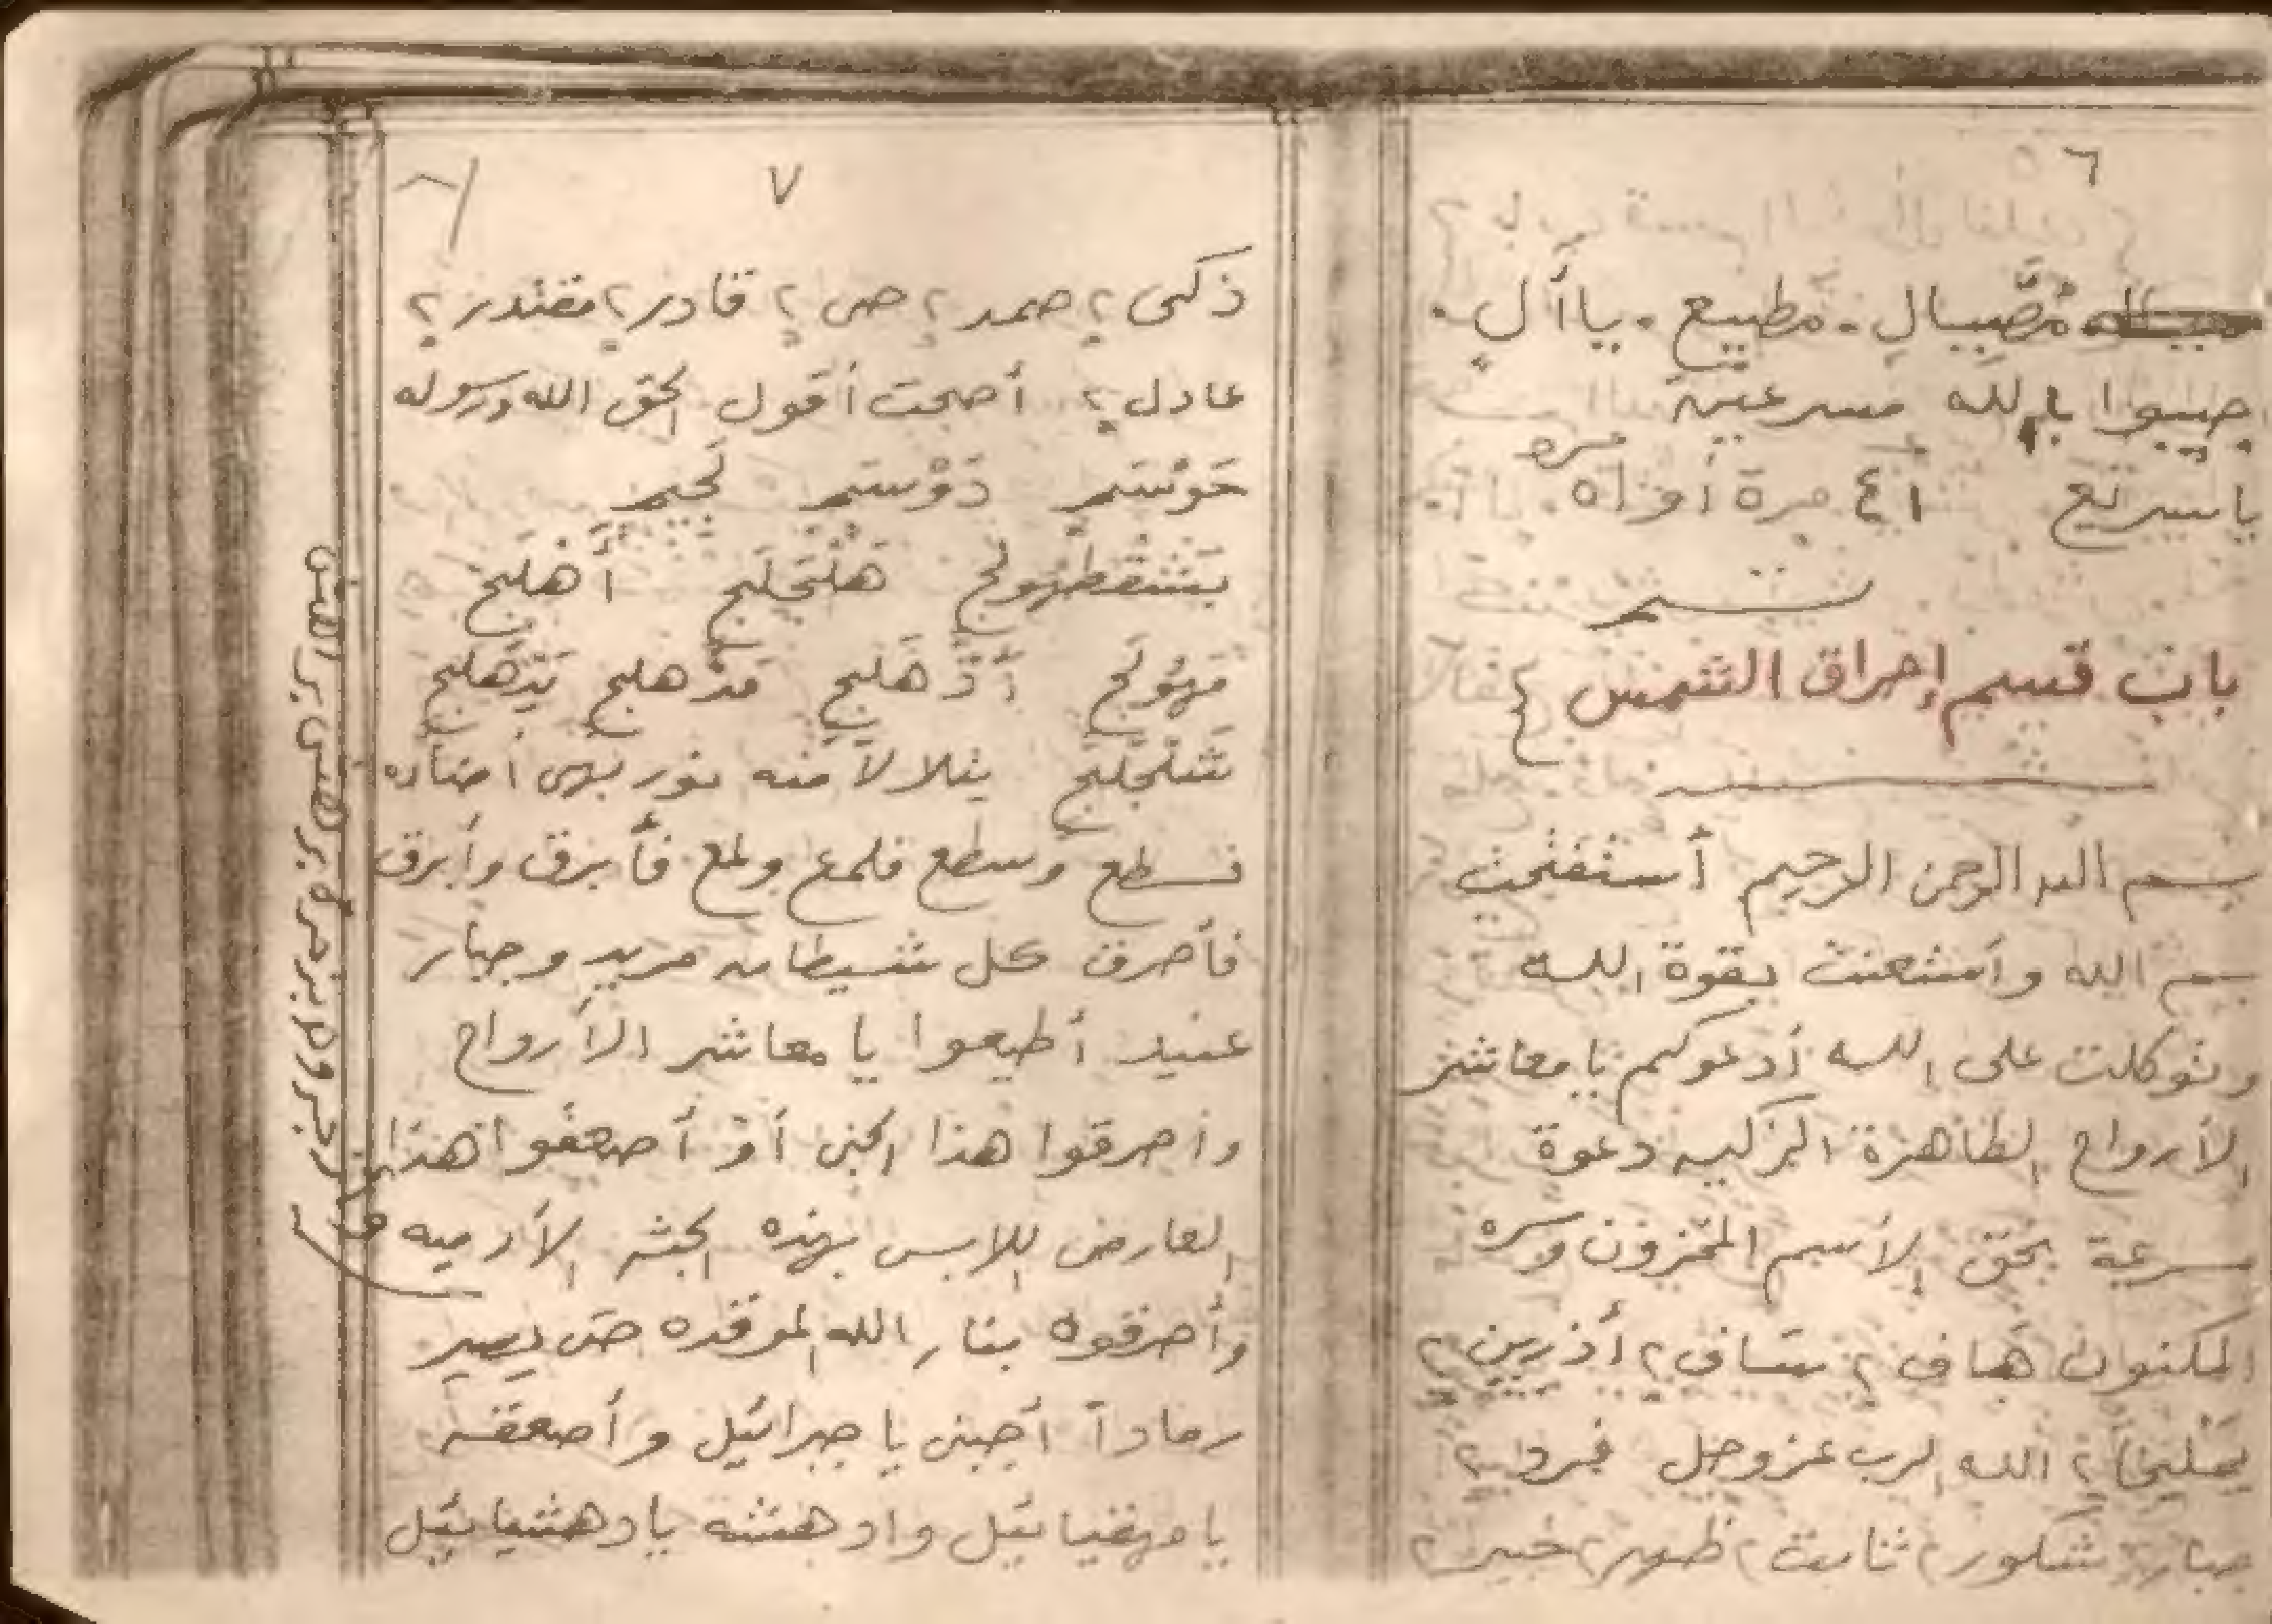 ٦
مُصَّيبالِ . مطيع . ياأل .
جيبوا بالله مسرعين
ياسيرتع ٤١ مرة أوزاه مره
باب قسم إحراق الشمس
بسم الله الرحمن الرحيم أستفتحت
بسم الله وأستعنت بقوة الله
وتوكلت على الله أدعوكم يا معاشر
الأرواح الطاهرة الزكيه دعوة
سرعية بحق الأسم المخزون وسره
المكنون هاف ٢ ساف ٢ أذرين ٢
٢ الله الرب عز وجل فرد ٢
جبار ٢ شكور ٢ ثابت ٢ ظهير ٢ خبير ٢
٧
ذكى ٢ صمد ٢ حى ٢ قادر ٢ مقتدر ٢
عادل ٢ أصبحت أقول الحق الله ورسوله
حَوْسَم دَوْسَم لجيم
هَلْجَلَج أَهلَج
مَهوُلَج أدَّهَلج مدْهلج يَدْهَلج
شَلْجَلَج يتلالأ منه نور بهى أضاءه
فسطع وسطع فلمع ولمع فأبرق وأبرق
فأحرق كل شيطان مريد وجبار
عنيد أطيعوا يا معاشر الأرواح
وأحرقوا هذا الجنى أو أصعقوا هذا
العارض اللابس بهذه الجثه الأدميه
وأحرقوه بنار الله الموقده حتى يصير
رماداً أجبنى يا جبرائيل وأصعقه
يا مهفيائيل وادهشه يا دهشيائيل